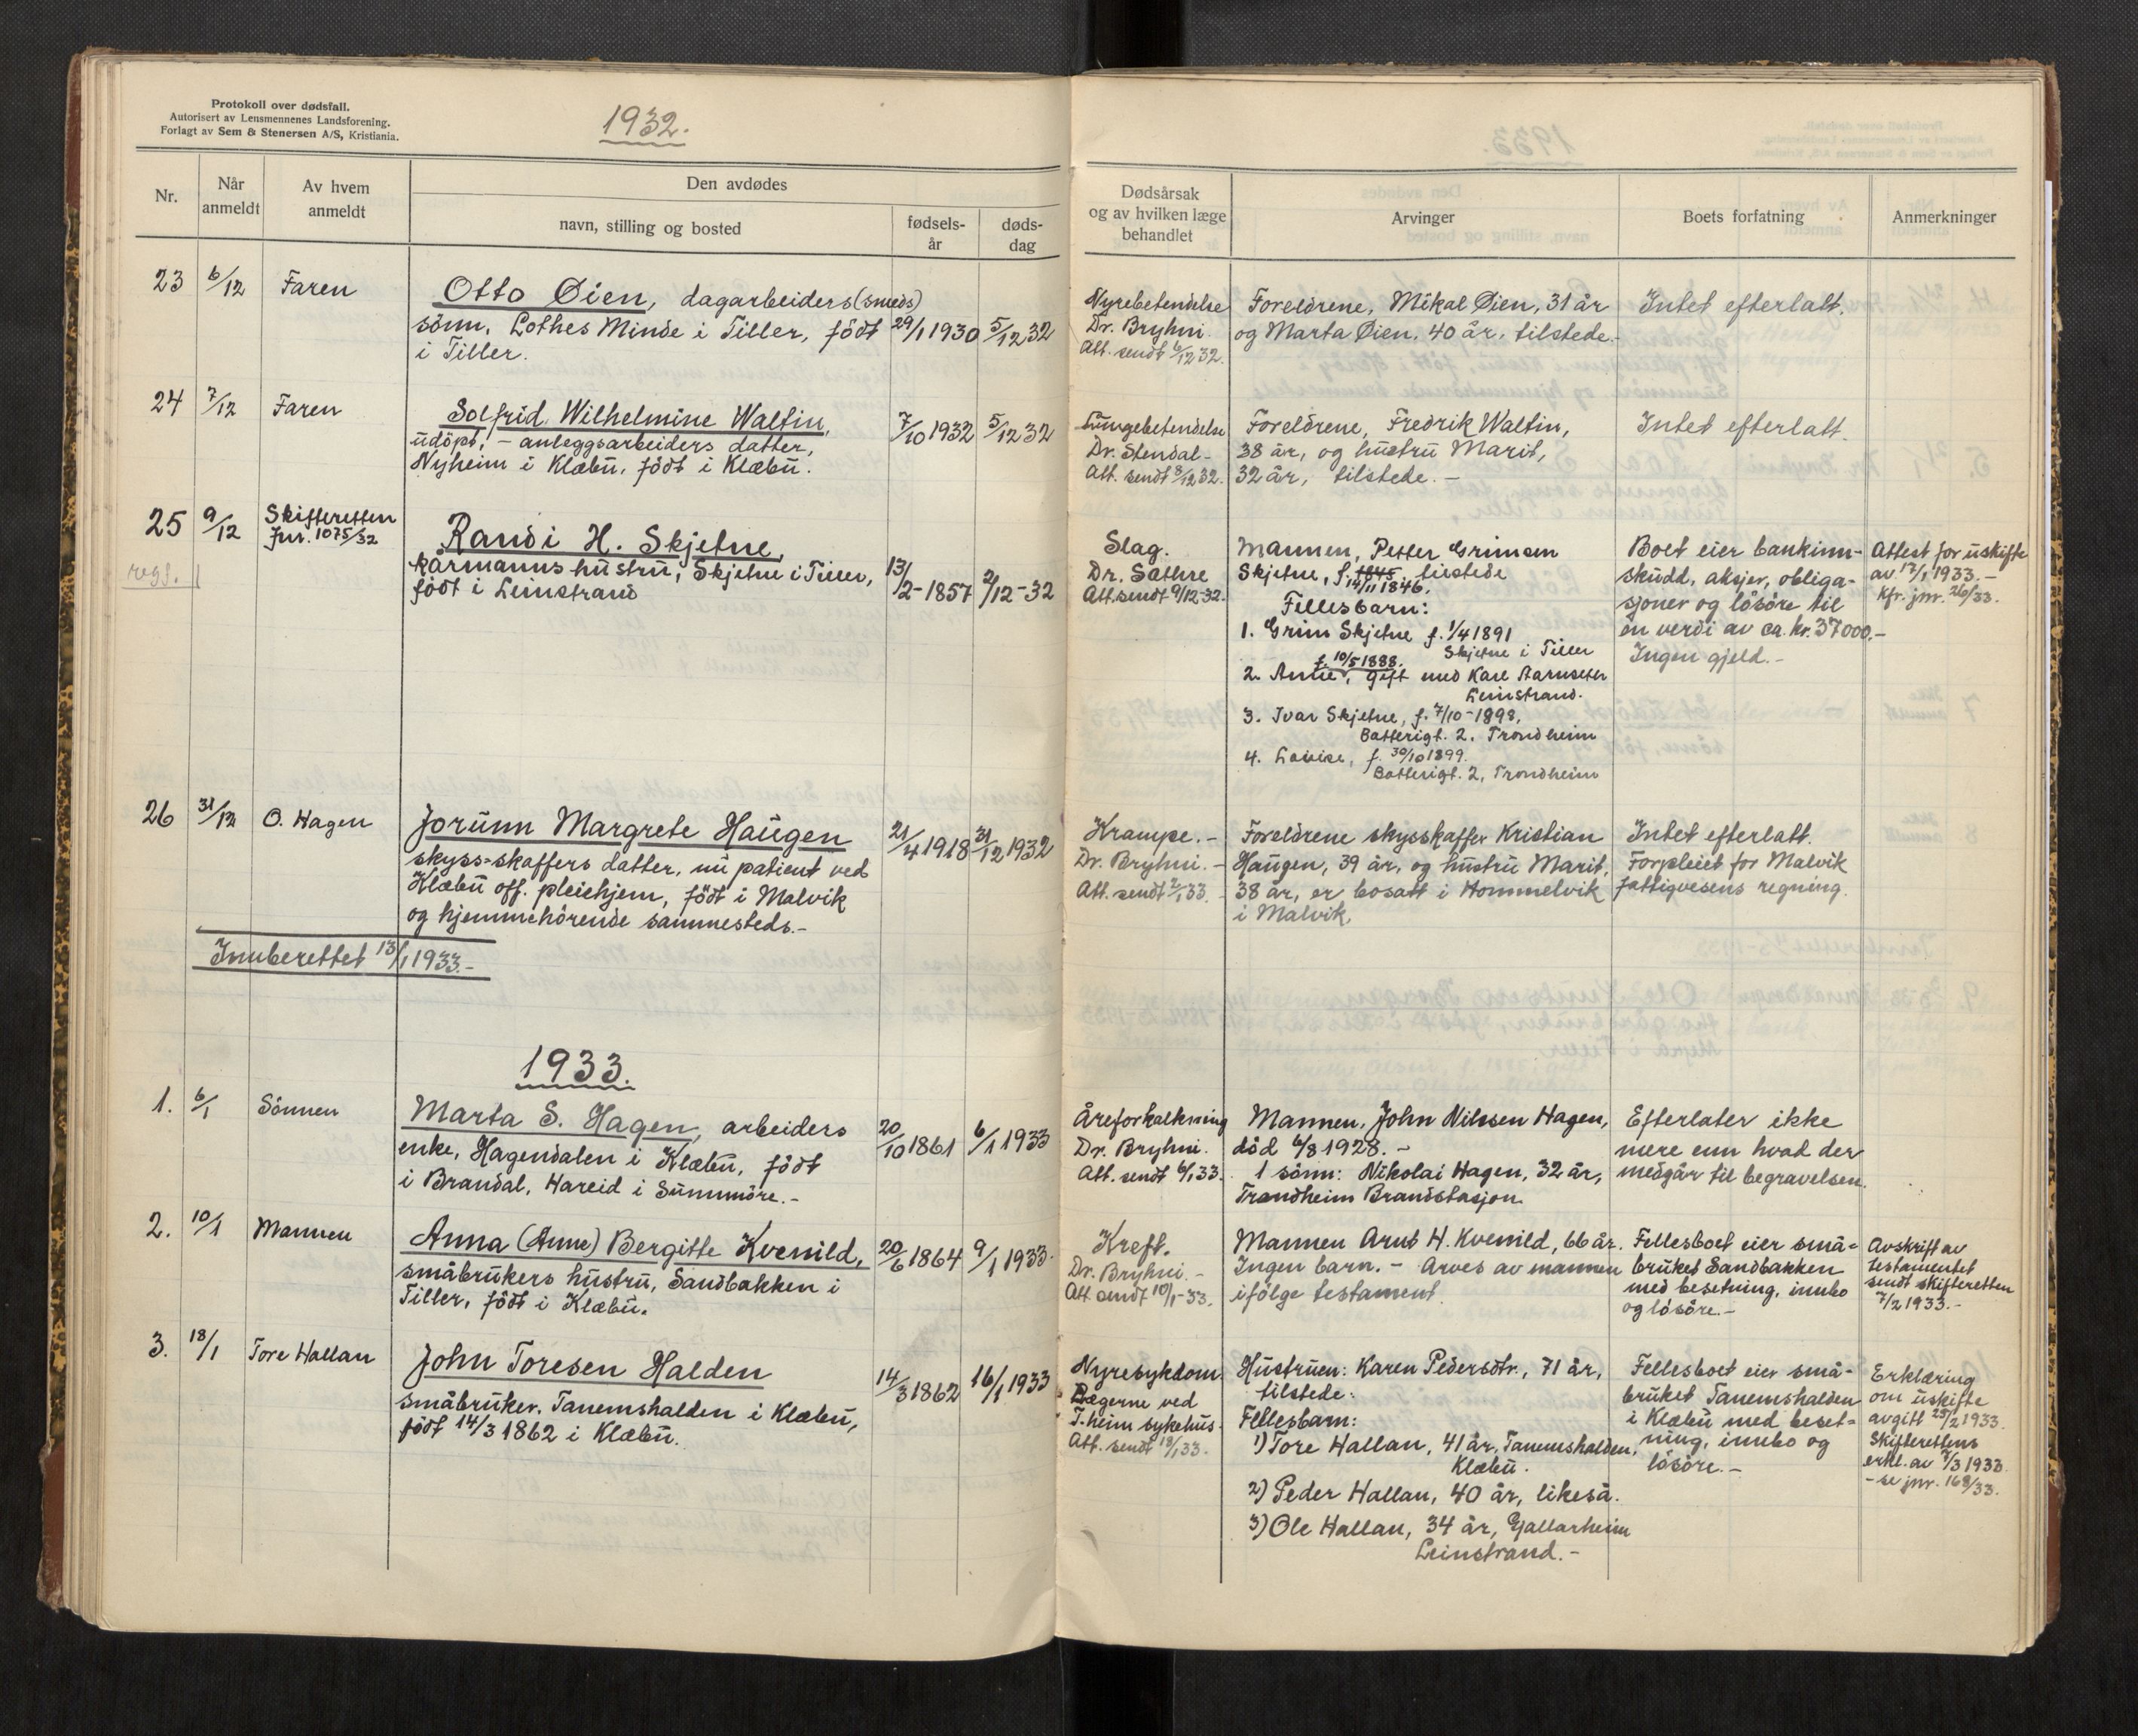 Protokoll over dødsfall.
Autorisert av Lensmennenes Landsforening.
Forlagt av Sem & Stenersen A/S, Kristiania.
1932.
Nr.
Når anmeldt
Av hvem anmeldt
Den avdødes
navn, stilling og bosted
fødsels-
år
døds-
dag
Dødsårsak
og av hvilken læge
behandlet
Arvinger
Boets forfatning
Anmerkninger
23 6/12 Faren
Otto Øien, dagarbeiders (smeds)
sönn, Lothes Minde i Tiller, födt
i Tiller.
29/1 1930 5/12 32
Nyrebetendelse
Dr. Bryhni.
Att. sendt 6/12 32.
Foreldrene, Mikal Øien, 31 år
og Marta Øien, 40 år, tilstede.-
Intet efterlatt.
24 7/12 Faren
Solfrid Wilhelmine Waltin,
udöpt, - anleggsarbeiders datter,
Nyheim i Klæbu, födt i Klæbu.
7/10 1932 5/12 32
Lungebetendelse
Dr. Stendal-
Att. sendt 8/12 32.
Foreldrene, Fredrik Waltin,
38 år, og hustru Marit,
32 år, tilstede. -
Intet efterlatt.
25 9/12 Skifteretten
Jnr. 1075/32
regf.
Randi H. Skjetne,
kårmanns hustru, Skjetne i Tiller,
födt i Leinstrand
13/2-1857 2/12-32
Slag.
Dr. Sæthre
Att. sendt 9/12-32.
Mannen, Petter Grimsen
Skjetne, f. 1845, tilstede
14/11 1846.
Fellesbarn:
1. Grim Skjetne f. 1/4 1891
Skjetne i Tiller
f. 10/5 1888.
2. Anne, gift med Kare Aarnseter
Leinstrand.
3. Ivar Skjetne, f. 7/10-1898,
Batterigt. 2, Trondheim
4. Lovise, f. 30/10 1899.
Batterigt. 2, Trondheim
Boet eier bankinn-
skudd, aksjer, obliga-
sjoner og lösöre til
en verdi av ca. kr. 37000.-
Ingen gjeld.-
Attest for uskifte
av 17/1 1933.-
Kfr. jnr. 26/33.
26 31/12 O. Hagen
Jorunn Margrete Haugen
skyss-skaffers datter, nu patient ved
Klæbu off. pleiehjem, födt i Malvik
og hjemmehörende sammesteds.-
21/4 1918 31/12 1932
Krampe.-
Dr. Bryhni.-
Att. sendt 2/1 33.-
Foreldrene skysskaffer Kristian
Haugen, 39 år, og hustru Marit,
38 år, er bosatt i Hommelvik
i Malvik.
Intet efterlatt.
Forpleiet for Malvik
fattigvesens regning.
Innberettet 13/1 1933.-
1933.
1. 6/1 Sönnen
Marta S. Hagen, arbeiders
enke, Hagendalen i Klæbu, födt
i Brandal, Hareid i Sunnmöre.-
20/10 1861 6/1 1933
Åreforkalkning
Dr. Bryhni.
Att. sendt 6/1 33.
Mannen, John Nilssen Hagen,
död 6/8 1928.-
1 sönn: Nikolai Hagen, 32 år,
Trondheim Brandstasjon
Efterlater ikke
mere enn hvad der
medgår til begravelsen.
2. 10/1 Mannen
Anna (Anne) Bergitte Kvenild,
småbrukers hustru, Sandbakken i
Tiller, födt i Klæbu.
20/6 1864 9/1 1933
Kreft.
Dr. Bryhni.-
Att. sendt 10/1-33.
Mannen Arnt H. Kvenild, 66 år.
Ingen barn.- Arves av mannen
ifölge testament.
Fellesboet eier små-
bruket Sandbakken
med besetning, innbo
og lösöre.-
Avskrift av
testamentet
sendt skifteretten
7/2 1933.-
3. 18/1 Tore Hallan
John Toresen Halden
småbruker, Tanemshalden i Klæbu,
födt 14/3 1862 i Klæbu.
14/3 1862 16/1 1933
Nyresykdom
Lægerne ved
T.heim sykehus.
Att. sendt 18/1 33.
Hustruen: Karen Pedersdtr., 71 år,
tilstede.
Fellesbarn:
1) Tore Hallan, 41 år, Tanemshalden,
Klæbu.
2) Peder Hallan, 40 år, likeså.
3) Ole Hallan, 34 år, Gjallarheim
Leinstrand.-
Fellesboet eier små-
bruket Tanemshalden
i Klæbu med beset-
ning, innbo og
lösöre.-
Erklæring
om uskifte
avgitt 25/2 1933.
Skifterettens
erkl. av 7/3 1933
- se jnr. 168/33.